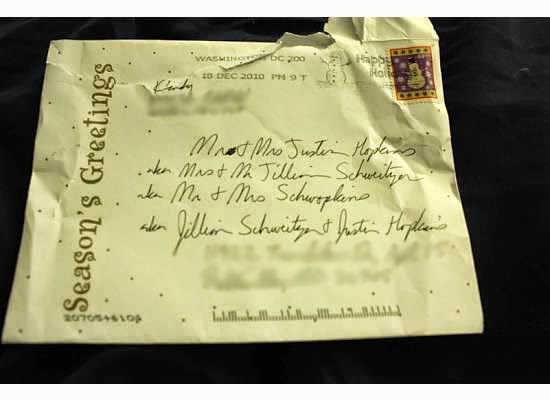 WASHINGTON DC 200
18 DEC 2010 PM 9 T
Happy
Holi
Kindy
Season's Greetings
Mr & Mrs Justin Hopkins
aka Mrs & Mr Jillian Schweitzer
aka Mr & Mrs Schwopkins
aka Jillian Schweitzer & Justin Hopkins